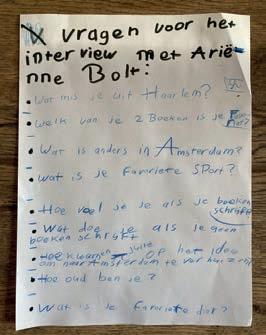 vragen voor het
interview met Arië-
nne Bolt:
• Wat mis je uit Haarlem?
• Welk van je 2 Boeken is je
• Wat is anders in Amsterdam?
• wat is je favoriete SPort?
• Hoe voel je je als je boeken
schrijft
• Wat doe je als je geen
boeken schrijft
• Hoe kwamen jullie op het idee
om naar Amsterdam te verhuizen?
• Hoe oud ben je?
• Wat is je favoriete dier?